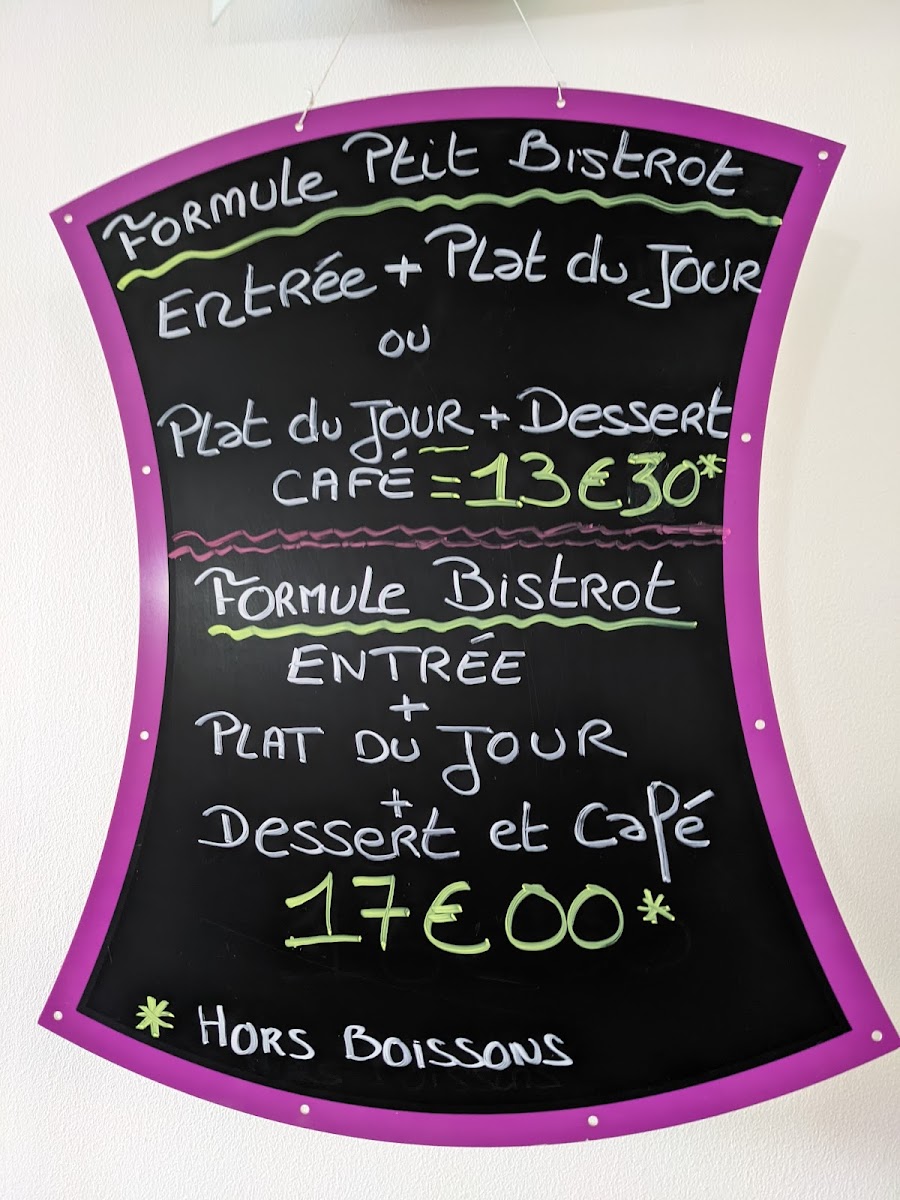 Formule Ptit Bistrot
Entrée + Plat du Jour
ou
Plat du Jour + Dessert
CAFÉ = 13€30*
Formule Bistrot
ENTRÉE
+
PLAT DU JOUR
+
Dessert et Café
17€00*
* HORS BOISSONS